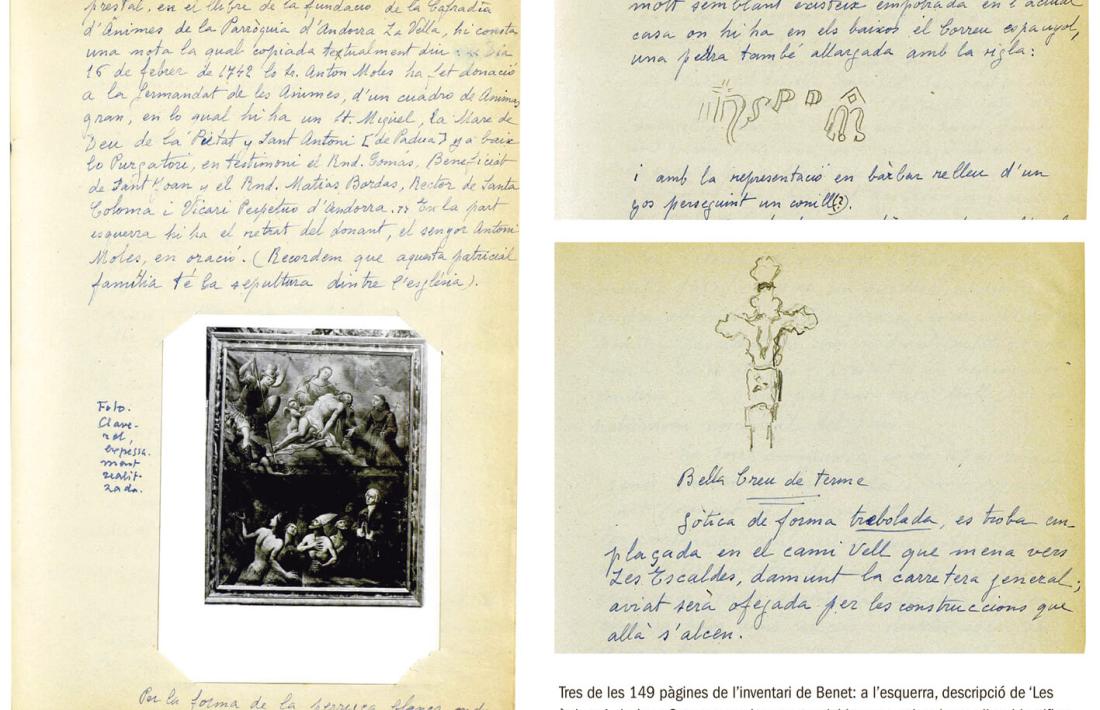 prestal, en el llibre de la fundació de la Cofradia
d'Ànimes de la Parròquia d'Andorra La Vella, hi consta
una nota la qual copiada textualment diu Dia
16 de febrer de 1742 lo Sr. Anton Moles ha fet donació
a la Germandat de les Animes, d'un cuadro de Animas
gran, en lo qual hi ha un St. Miquel, la Mare de
Deu de la Pietat y Sant Antoni [de Padua] y a baix
lo Purgatori, en testimoni el Rnd. Tomas, Beneficiat
de Sant Joan y el Rnd. Matias Bordas, Rector de Santa
Coloma i Vicari Perpetuo d'Andorra.?? En la part
esquerra hi ha el retrat del donant, el senyor Antoni
Moles, en oració. (Recordem que aquesta patricial
família té la sepultura dintre l'església).
Foto.
Clave-
rol,
expessa-
ment
realit-
zada.
Per la forma de la perruca blanca
molt semblant existeix empotrada en l'actual
casa on hi ha en els baixos el Correu espanyol,
una pedra també allargada amb la sigla:
i amb la representació en bàrbar relleu d'un
gos perseguint un conill(?).
Bella Creu de terme
gòtica de forma trebolada, es troba em-
plaçada en el camí Vell que mena vers
Les Escaldes, damunt la carretera general;
aviat serà ofegada per les construccions que
allà s'alcen.
Tres de les 149 pàgines de l'inventari de Benet: a l'esquerra, descripció de 'Les